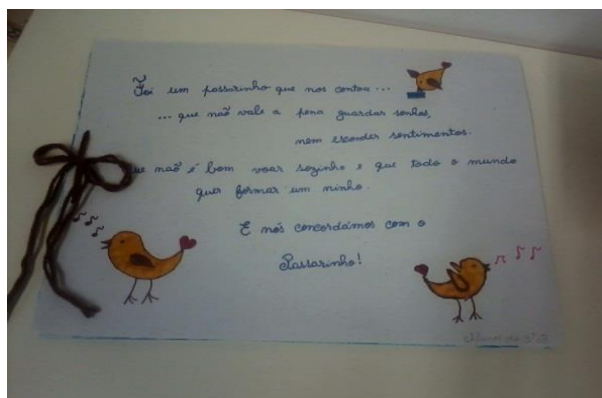 Foi um passarinho que nos contou...
... que não vale a pena guardar sonhos,
nem esconder sentimentos.
Que não é bom voar sozinho e que todo o mundo
quer formar um ninho.
E nós concordámos com o
Passarinho!
Alunos do 3º